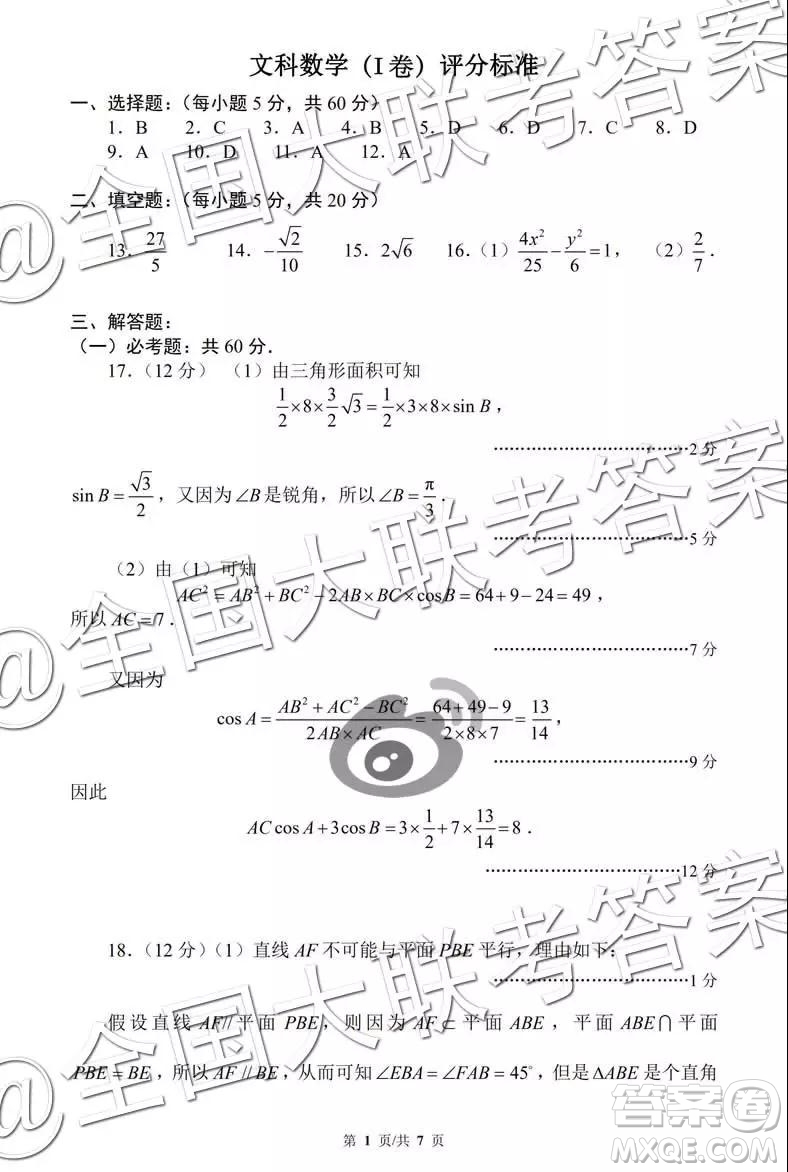 文科数学（I 卷）评分标准
一、选择题：（每小题 5 分，共 60 分）
1．B 2．C 3．A 4．B 5．D 6．D 7．C 8．D
9．A 10．D 11．A 12．A
二、填空题：（每小题 5 分，共 20 分）
13．27/5 14．-√2/10 15．2√6 16．（1）4x²/25 - y²/6 =1， （2）2/7．
三、解答题：
（一）必考题：共 60 分．
17．（12 分）（1）由三角形面积可知
1/2×8×3/2√3=1/2×3×8×sin B，
……………………………2 分
sin B=√3/2，又因为∠B是锐角，所以∠B=π/3．
……………………………5 分
（2）由（1）可知
AC²=AB²+BC²-2AB×BC×cosB=64+9-24=49，
所以 AC=7．
……………………………7 分
又因为
cos A=(AB²+AC²-BC²)/(2AB×AC)=(64+49-9)/(2×8×7)=13/14，
……………………………9 分
因此
AC cos A+3cos B=3×1/2+7×13/14=8．
……………………………12 分
18．（12 分）（1）直线 AF 不可能与平面 PBE 平行，理由如下：
……………………………1 分
假设直线 AF// 平面 PBE，则因为 AF⊂平面 ABE，平面 ABE∩平面
PBE=BE，所以 AF//BE，从而可知∠EBA=∠FAB=45°，但是ΔABE 是个直角
第 1 页/共 7 页
@全国大联考答案
@全国大联考答案
@全国大联考答案
答案圈
MXQE.COM